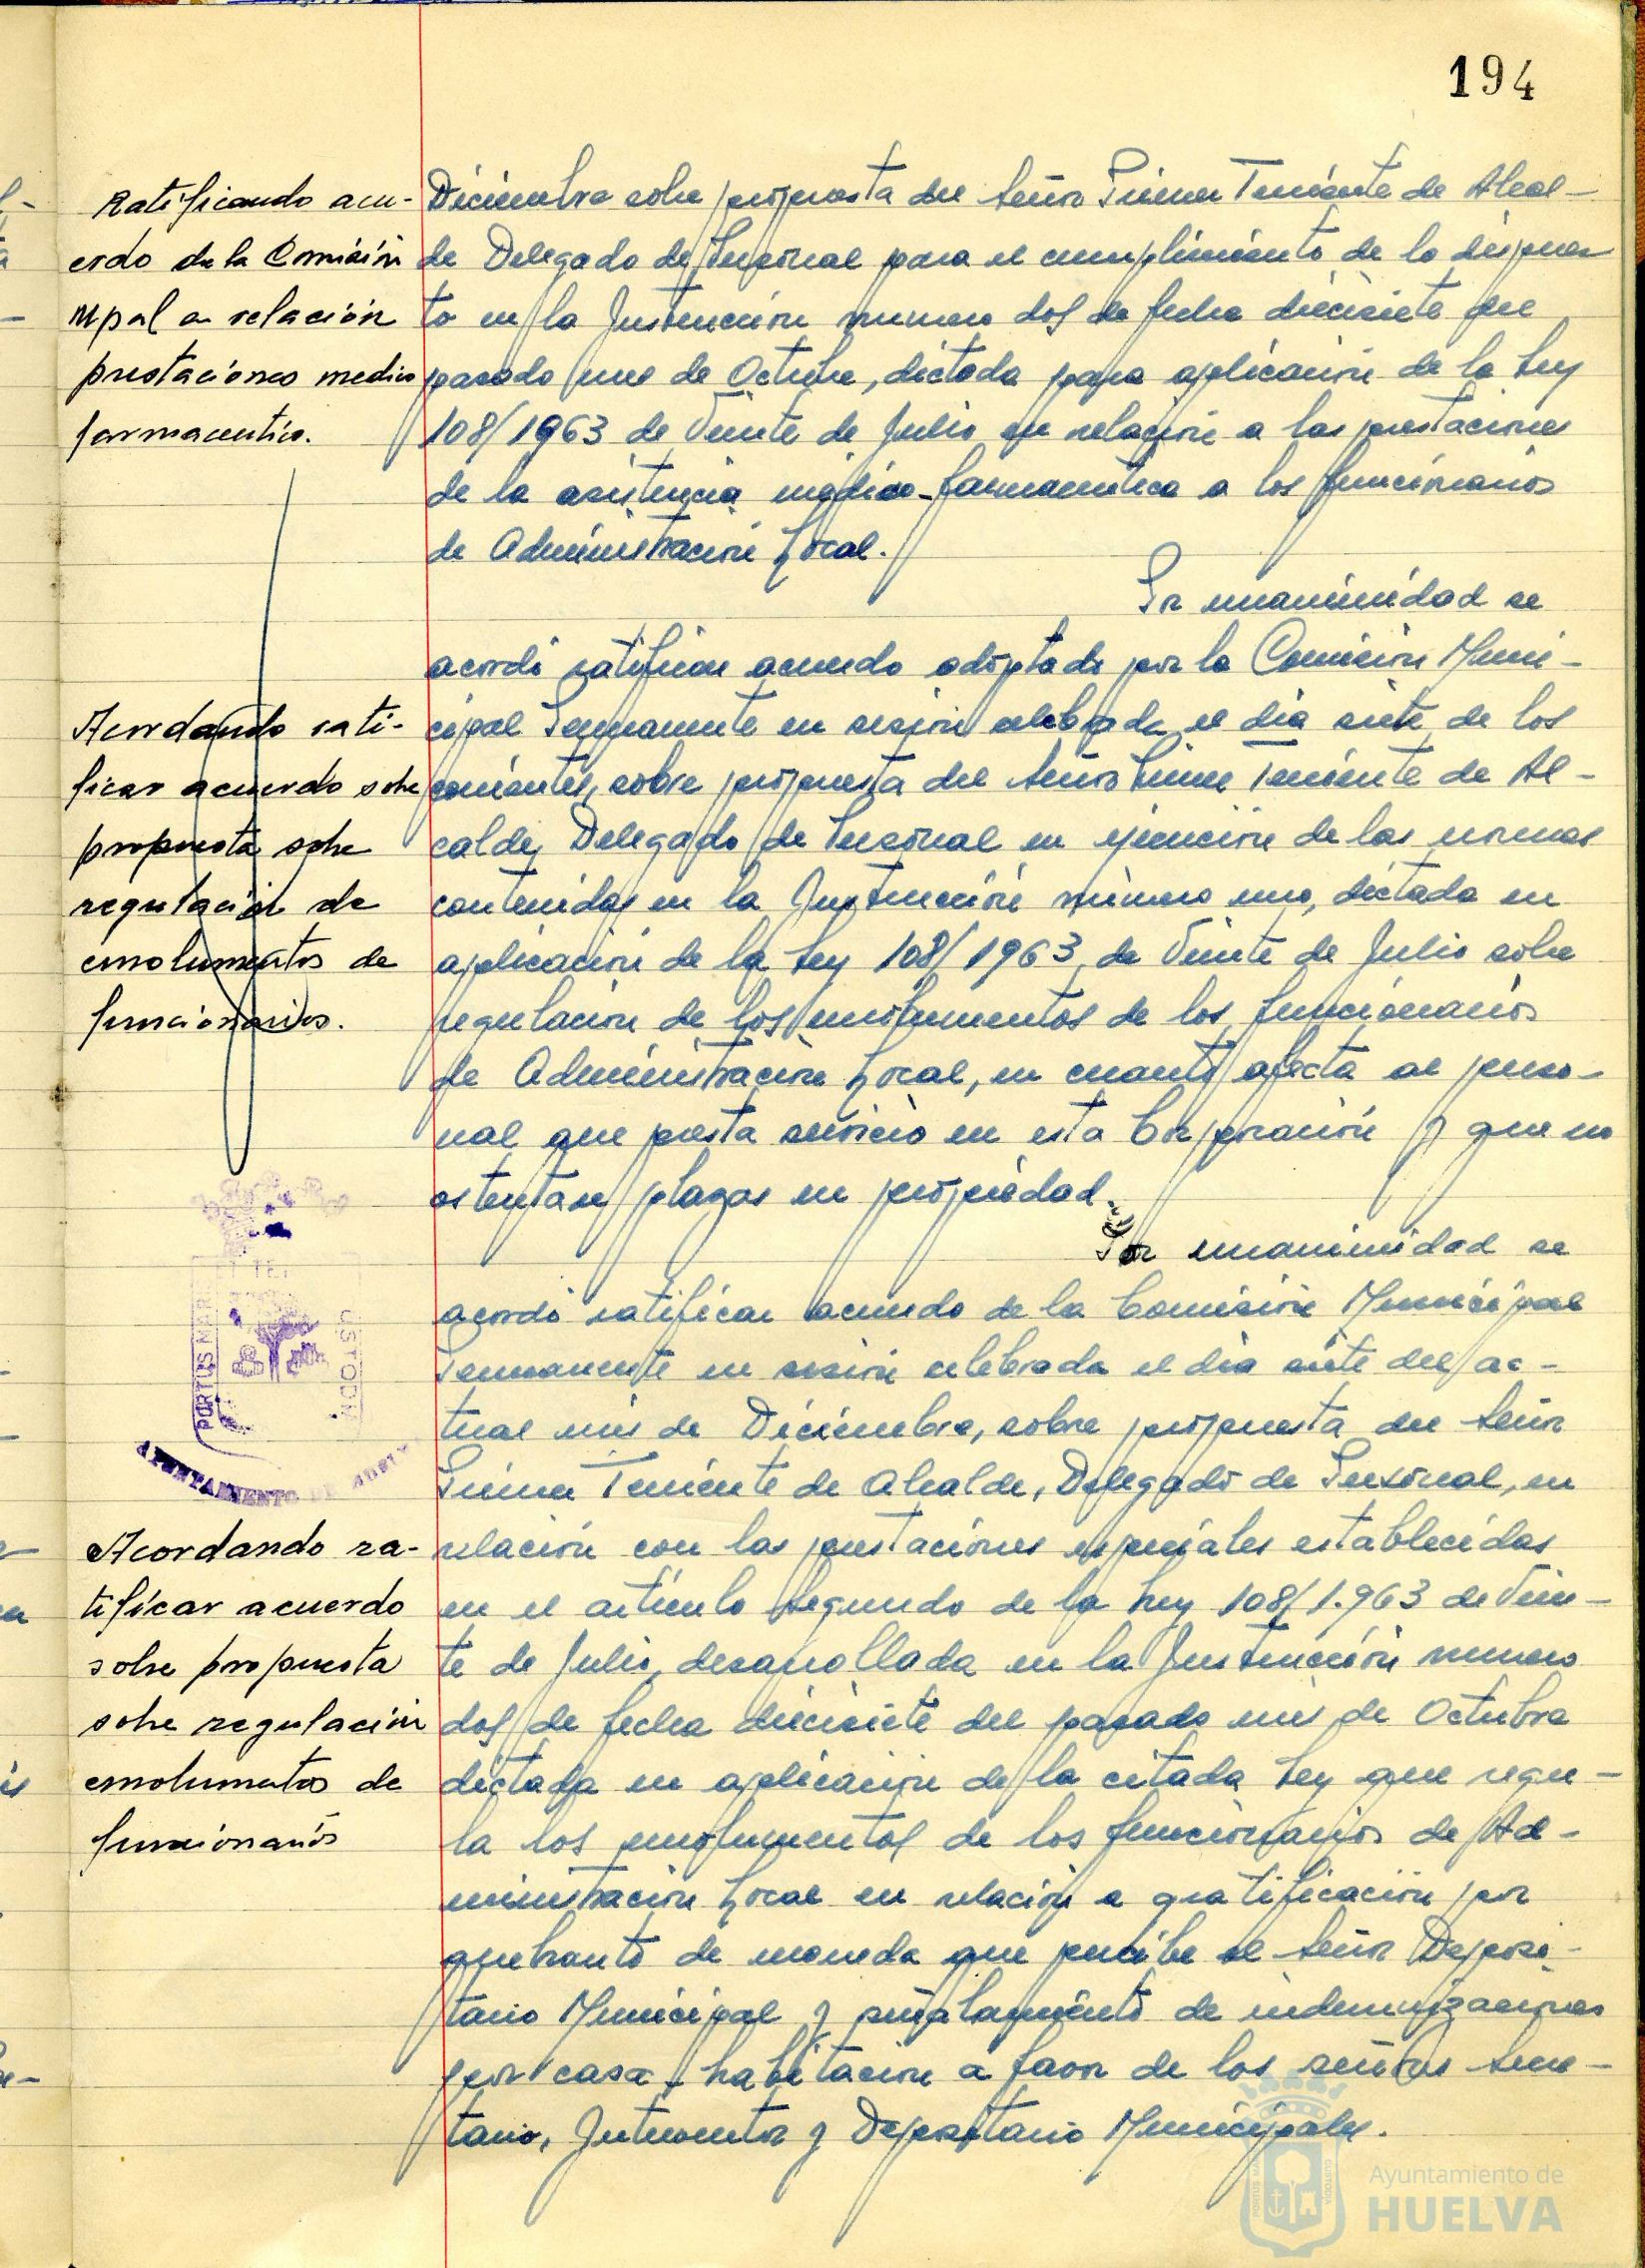 194
Ratificando acu-
erdo de la Comisión
Mpal en relación
prestaciones medico
farmaceutica.
Diciembre sobre propuesta del Señor Primer Teniente de Alcal-
de Delegado de Personal para el cumplimiento de lo dispues
to en la Instrucción numero dos de fecha diecisiete del
pasado mes de Octubre, dictada para aplicación de la Ley
108/1963 de Veinte de Julio en relación a las prestaciones
de la asistencia médico-farmaceutica a los funcionarios
de Administración Local.
Por unanimidad se
acordó ratificar acuerdo adoptado por la Comisión Muni-
cipal Permanente en sesión celebrada el día siete de los
corrientes, sobre propuesta del Señor Primer Teniente de Al-
calde, Delegado de Personal en ejecución de las normas
contenidas en la Instrucción número uno, dictada en
aplicación de la Ley 108/1963, de Veinte de Julio sobre
regulación de los emolumentos de los funcionarios
de Administración Local, en cuanto afecta al perso-
nal que presta servicio en esta Corporación y que no
ostentase plazas en propiedad.
Acordando rati-
ficar acuerdo sobre
propuesta sobre
regulación de
emolumentos de
funcionarios.
Por unanimidad se
acordó ratificar acuerdo de la Comisión Municipal
Permanente en sesión celebrada el día siete del ac-
tual mes de Diciembre, sobre propuesta del Señor
Primer Teniente de Alcalde, Delegado de Personal, en
relación con las prestaciones especiales establecidas
en el artículo segundo de la Ley 108/1.963 de Vein-
te de Julio, desarrollada en la Instrucción numero
dos de fecha diecisiete del pasado mes de Octubre
dictada en aplicación de la citada Ley que regu-
la los emolumentos de los funcionarios de Ad-
ministración Local en relación a gratificación por
quebranto de moneda que percibe el Señor Deposi-
tario Municipal y señalamiento de indemnizaciones
por casa-habitación a favor de los señores Secre-
tario, Interventor y Depositario Municipales.
PORTUS MARIS
ET TER
CUSTODIA
AYUNTAMIENTO DE HUELVA
Acordando ra-
tificar acuerdo
sobre propuesta
sobre regulación
emolumentos de
funcionarios
Ayuntamiento de
HUELVA